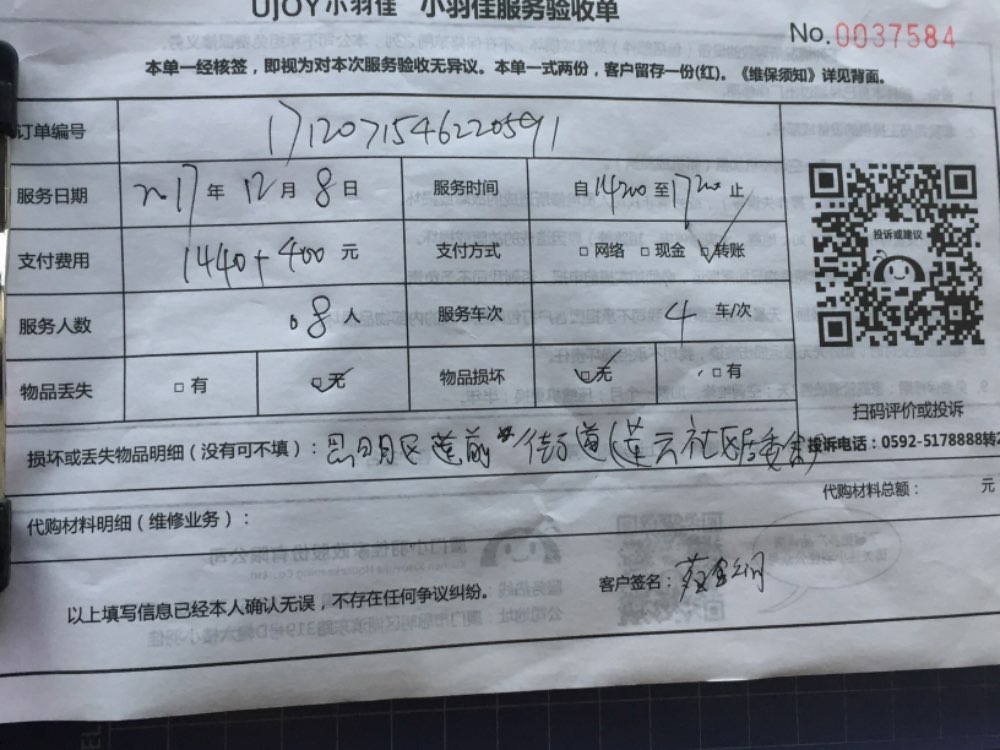 UJOY小羽佳 小羽佳服务验收单
No.0037584
本单一经核签，即视为对本次服务验收无异议。本单一式两份，客户留存一份(红)。《维保须知》详见背面。
订单编号 171207154622059 1
服务日期 2017年12月8日 服务时间 自1400至1700止
支付费用 1440+400元 支付方式 □网络 □现金 □转账
投诉或建议
服务人数 8人 服务车次 4 车/次
物品丢失 □有 □无 物品损坏 □无 □有
扫码评价或投诉
损坏或丢失物品明细（没有可不填）：思明区莲前街道莲云社区居委会
投诉电话：0592-5178888转2
代购材料总额： 元
代购材料明细（维修业务）：
客户签名：
以上填写信息已经本人确认无误，不存在任何争议纠纷。